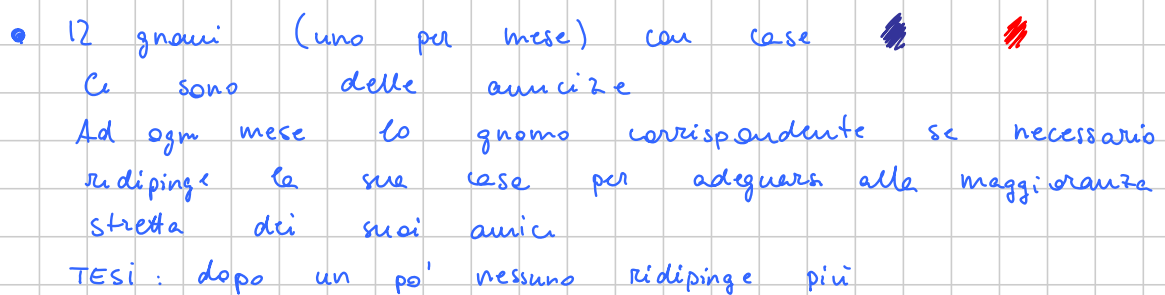 • 12 gnomi (uno per mese) con case
Ci sono delle amicizie
Ad ogni mese lo gnomo corrispondente se necessario
ridipinge la sua casa per adeguarsi alla maggioranza
stretta dei suoi amici
TESI : dopo un po' nessuno ridipinge più